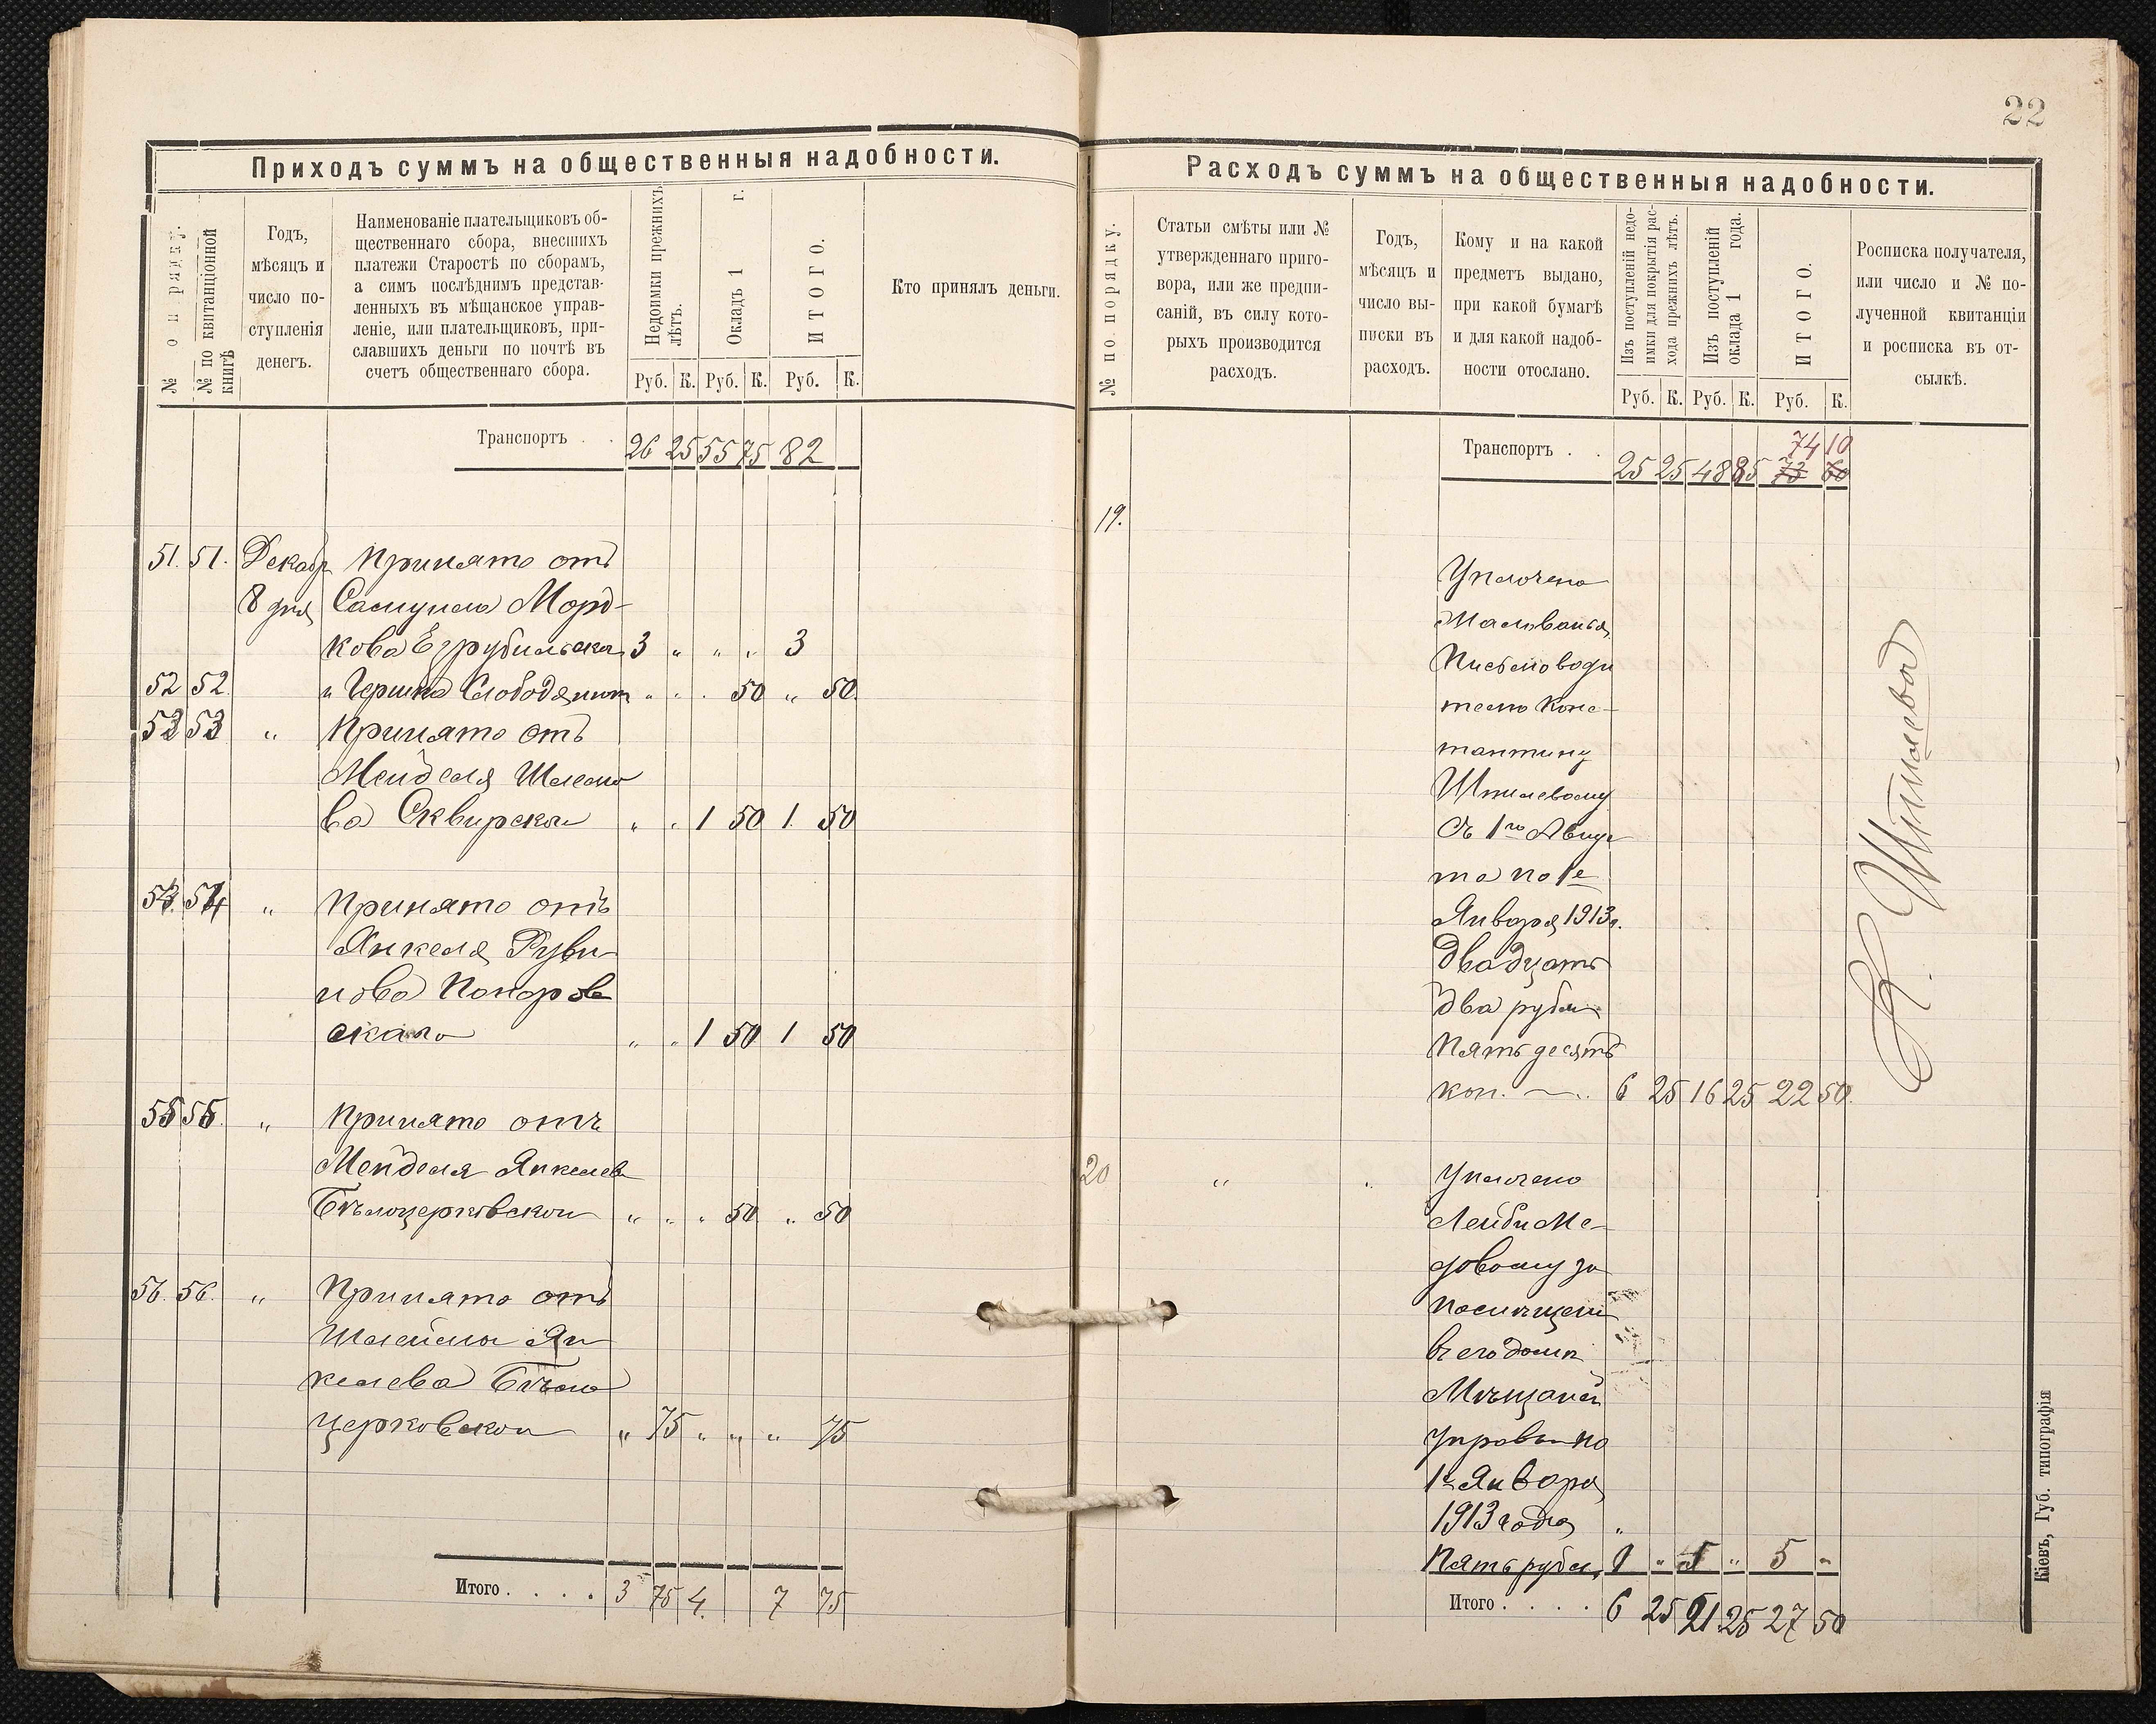 22
Приходъ суммъ на общественныя надобности.
№ по рядку.
№ по квитанціонной
книгѣ
Годъ,
мѣсяцъ и
число по-
ступленія
денегъ.
Наименованіе плательщиковъ об-
щественнаго сбора, внесшихъ
платежи Старостѣ по сборамъ,
а симъ послѣднимъ представ-
ленныхъ въ мѣщанское управ-
леніе, или плательщиковъ, при-
славшихъ деньги по почтѣ въ
счетъ общественнаго сбора.
Недоимки прежнихъ
лѣтъ.
Окладъ 1 г.
ИТОГО.
Кто принялъ деньги.
Руб. К. Руб. К. Руб. К.
Транспортъ . . 26 25 55 75 82
51. 51. Декабр Принято отъ
8 дня Самуила Морд-
кова 3 „ „ „ 3
52 52. „ Гершка Слободянит „ „ . 50 „ 50.
53 53 „ Принято отъ
Менделя Шлемо
ва Сквирскаи „ „ 1 50 1. 50
54. 54 „ Принято отъ
Янкеля Руви
нова Поноров
скаго „ „ 1 50 1 50
55 55. „ Принято отъ
Менделя Янкелев
Бѣлоцерковскои „ „ „ 50 „ 50
56. 56. „ Принято отъ
Шлеймы Ян
келева Бѣло
церковскои „ 75 „ „ „ 75
Итого . . . . 3 75 4. 7 75
Расходъ суммъ на общественныя надобности.
№ по порядку.
Статьи смѣты или №
утвержденнаго приго-
вора, или же предпи-
саній, въ силу кото-
рыхъ производится
расходъ.
Годъ,
мѣсяцъ и
число вы-
писки въ
расходъ.
Кому и на какой
предметъ выдано,
при какой бумагѣ
и для какой надоб-
ности отослано.
Изъ поступленій недо-
имки для покрытія рас-
хода прежнихъ лѣтъ.
Изъ поступленій
оклада 1 года.
ИТОГО.
Росписка получателя,
или число и № по-
лученной квитанціи
и росписка въ от-
сылкѣ.
Руб. К. Руб. К. Руб. К.
74 10
Транспортъ . . 25 25 48 85 73 60
19.
Уплочено
Жалованья
Письмоводи
телю Конс-
тантину
Шпилевому
Съ 1го Авгус
та по 1е
Января 1913 г.
Двадцать
два рубли
Пятьдесятъ
коп. 6 25 16 25 22 50.
К. Шпилевой
20 „ „ Уплочено
Лейби Ме-
довому за
помѣщен
въ его домѣ
Мѣщанск
Управы по
1е Января
1913 года „
Пять рубл. „ 5 „ 5 „
Итого . . . . 6 25 21 25 27 50
Кіевъ, Губ. типографія